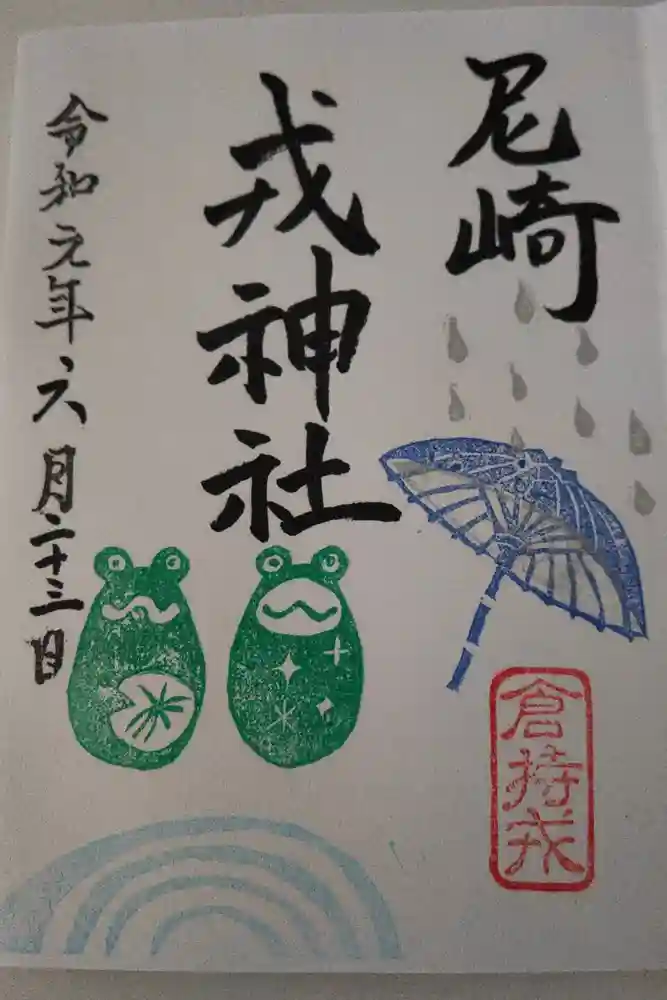 尼崎
戎神社
令和元年六月二十三日
倉持戎